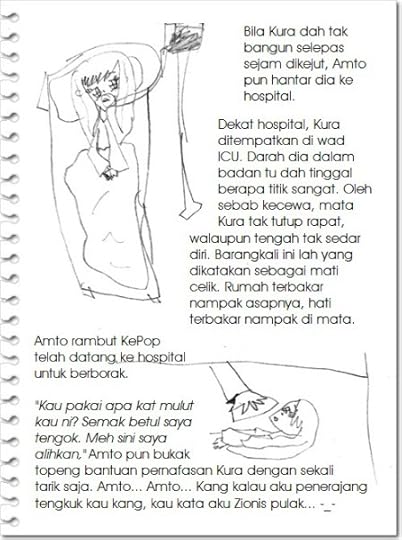 Bila Kura dah tak
bangun selepas
sejam dikejut, Amto
pun hantar dia ke
hospital.
Dekat hospital, Kura
ditempatkan di wad
ICU. Darah dia dalam
badan tu dah tinggal
berapa titik sangat. Oleh
sebab kecewa, mata
Kura tak tutup rapat,
walaupun tengah tak sedar
diri. Barangkali ini lah yang
dikatakan sebagai mati
celik. Rumah terbakar
nampak asapnya, hati
terbakar nampak di mata.
Amto rambut KePop
telah datang ke hospital
untuk berborak.
"Kau pakai apa kat mulut
kau ni? Semak betul saya
tengok. Meh sini saya
alihkan,"Amto pun bukak
topeng bantuan pernafasan Kura dengan sekali
tarik saja. Amto... Amto... Kang kalau aku penerajang
tengkuk kau kang, kau kata aku Zionis pulak... -_-